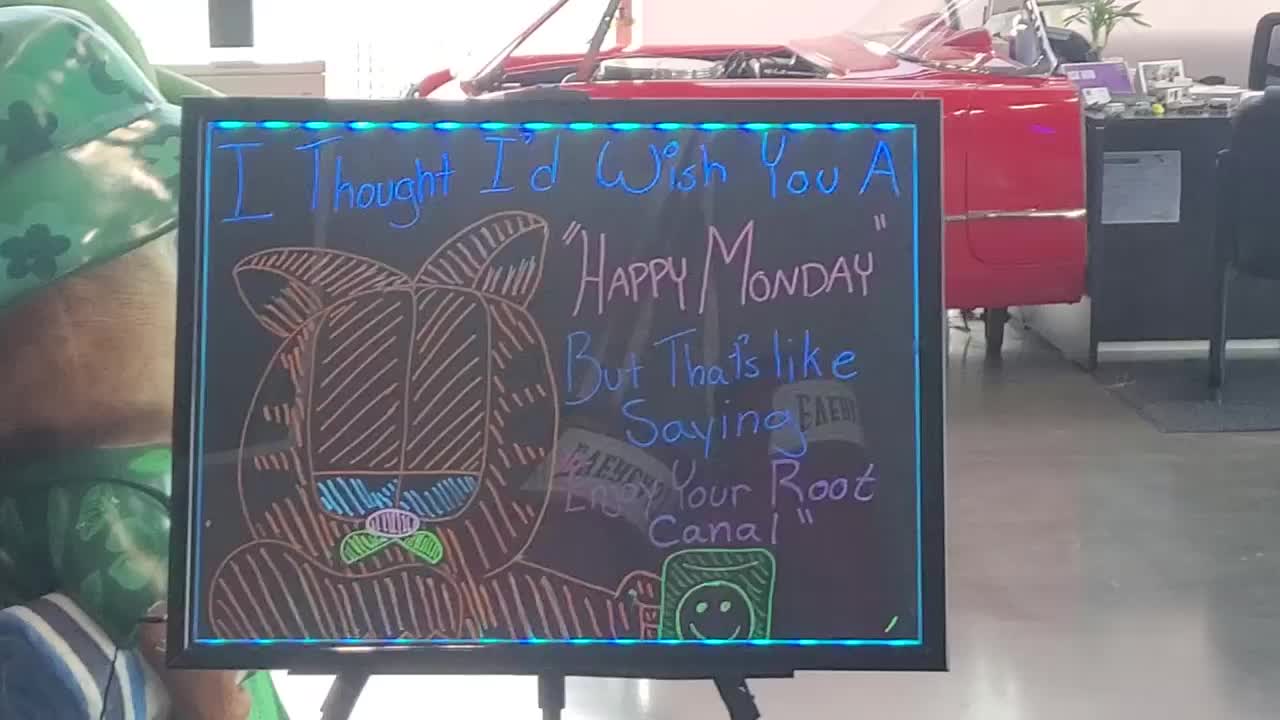 I Thought I'd Wish You A
"HAPPY MONDAY"
But That's like
Saying
Enjoy Your Root
Canal"